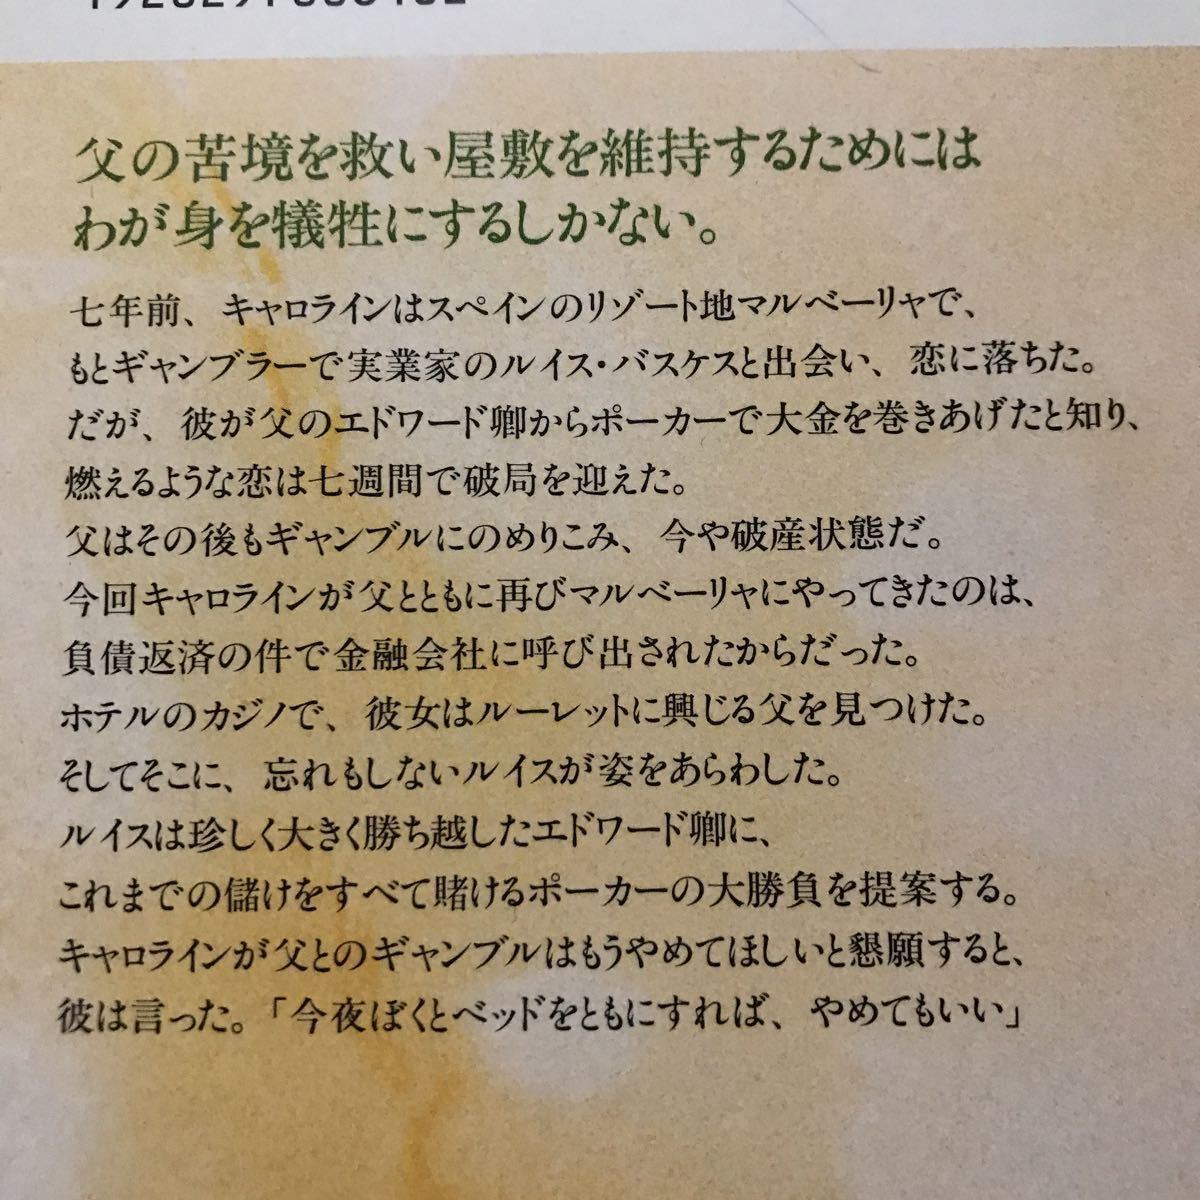 父の苦境を救い屋敷を維持するためには
わが身を犠牲にするしかない。
七年前、キャロラインはスペインのリゾート地マルベーリャで、
もとギャンブラーで実業家のルイス・バスケスと出会い、恋に落ちた。
だが、彼が父のエドワード卿からポーカーで大金を巻きあげたと知り、
燃えるような恋は七週間で破局を迎えた。
父はその後もギャンブルにのめりこみ、今や破産状態だ。
今回キャロラインが父とともに再びマルベーリャにやってきたのは、
負債返済の件で金融会社に呼び出されたからだった。
ホテルのカジノで、彼女はルーレットに興じる父を見つけた。
そしてそこに、忘れもしないルイスが姿をあらわした。
ルイスは珍しく大きく勝ち越したエドワード卿に、
これまでの儲けをすべて賭けるポーカーの大勝負を提案する。
キャロラインが父とのギャンブルはもうやめてほしいと懇願すると、
彼は言った。「今夜ぼくとベッドをともにすれば、やめてもいい」